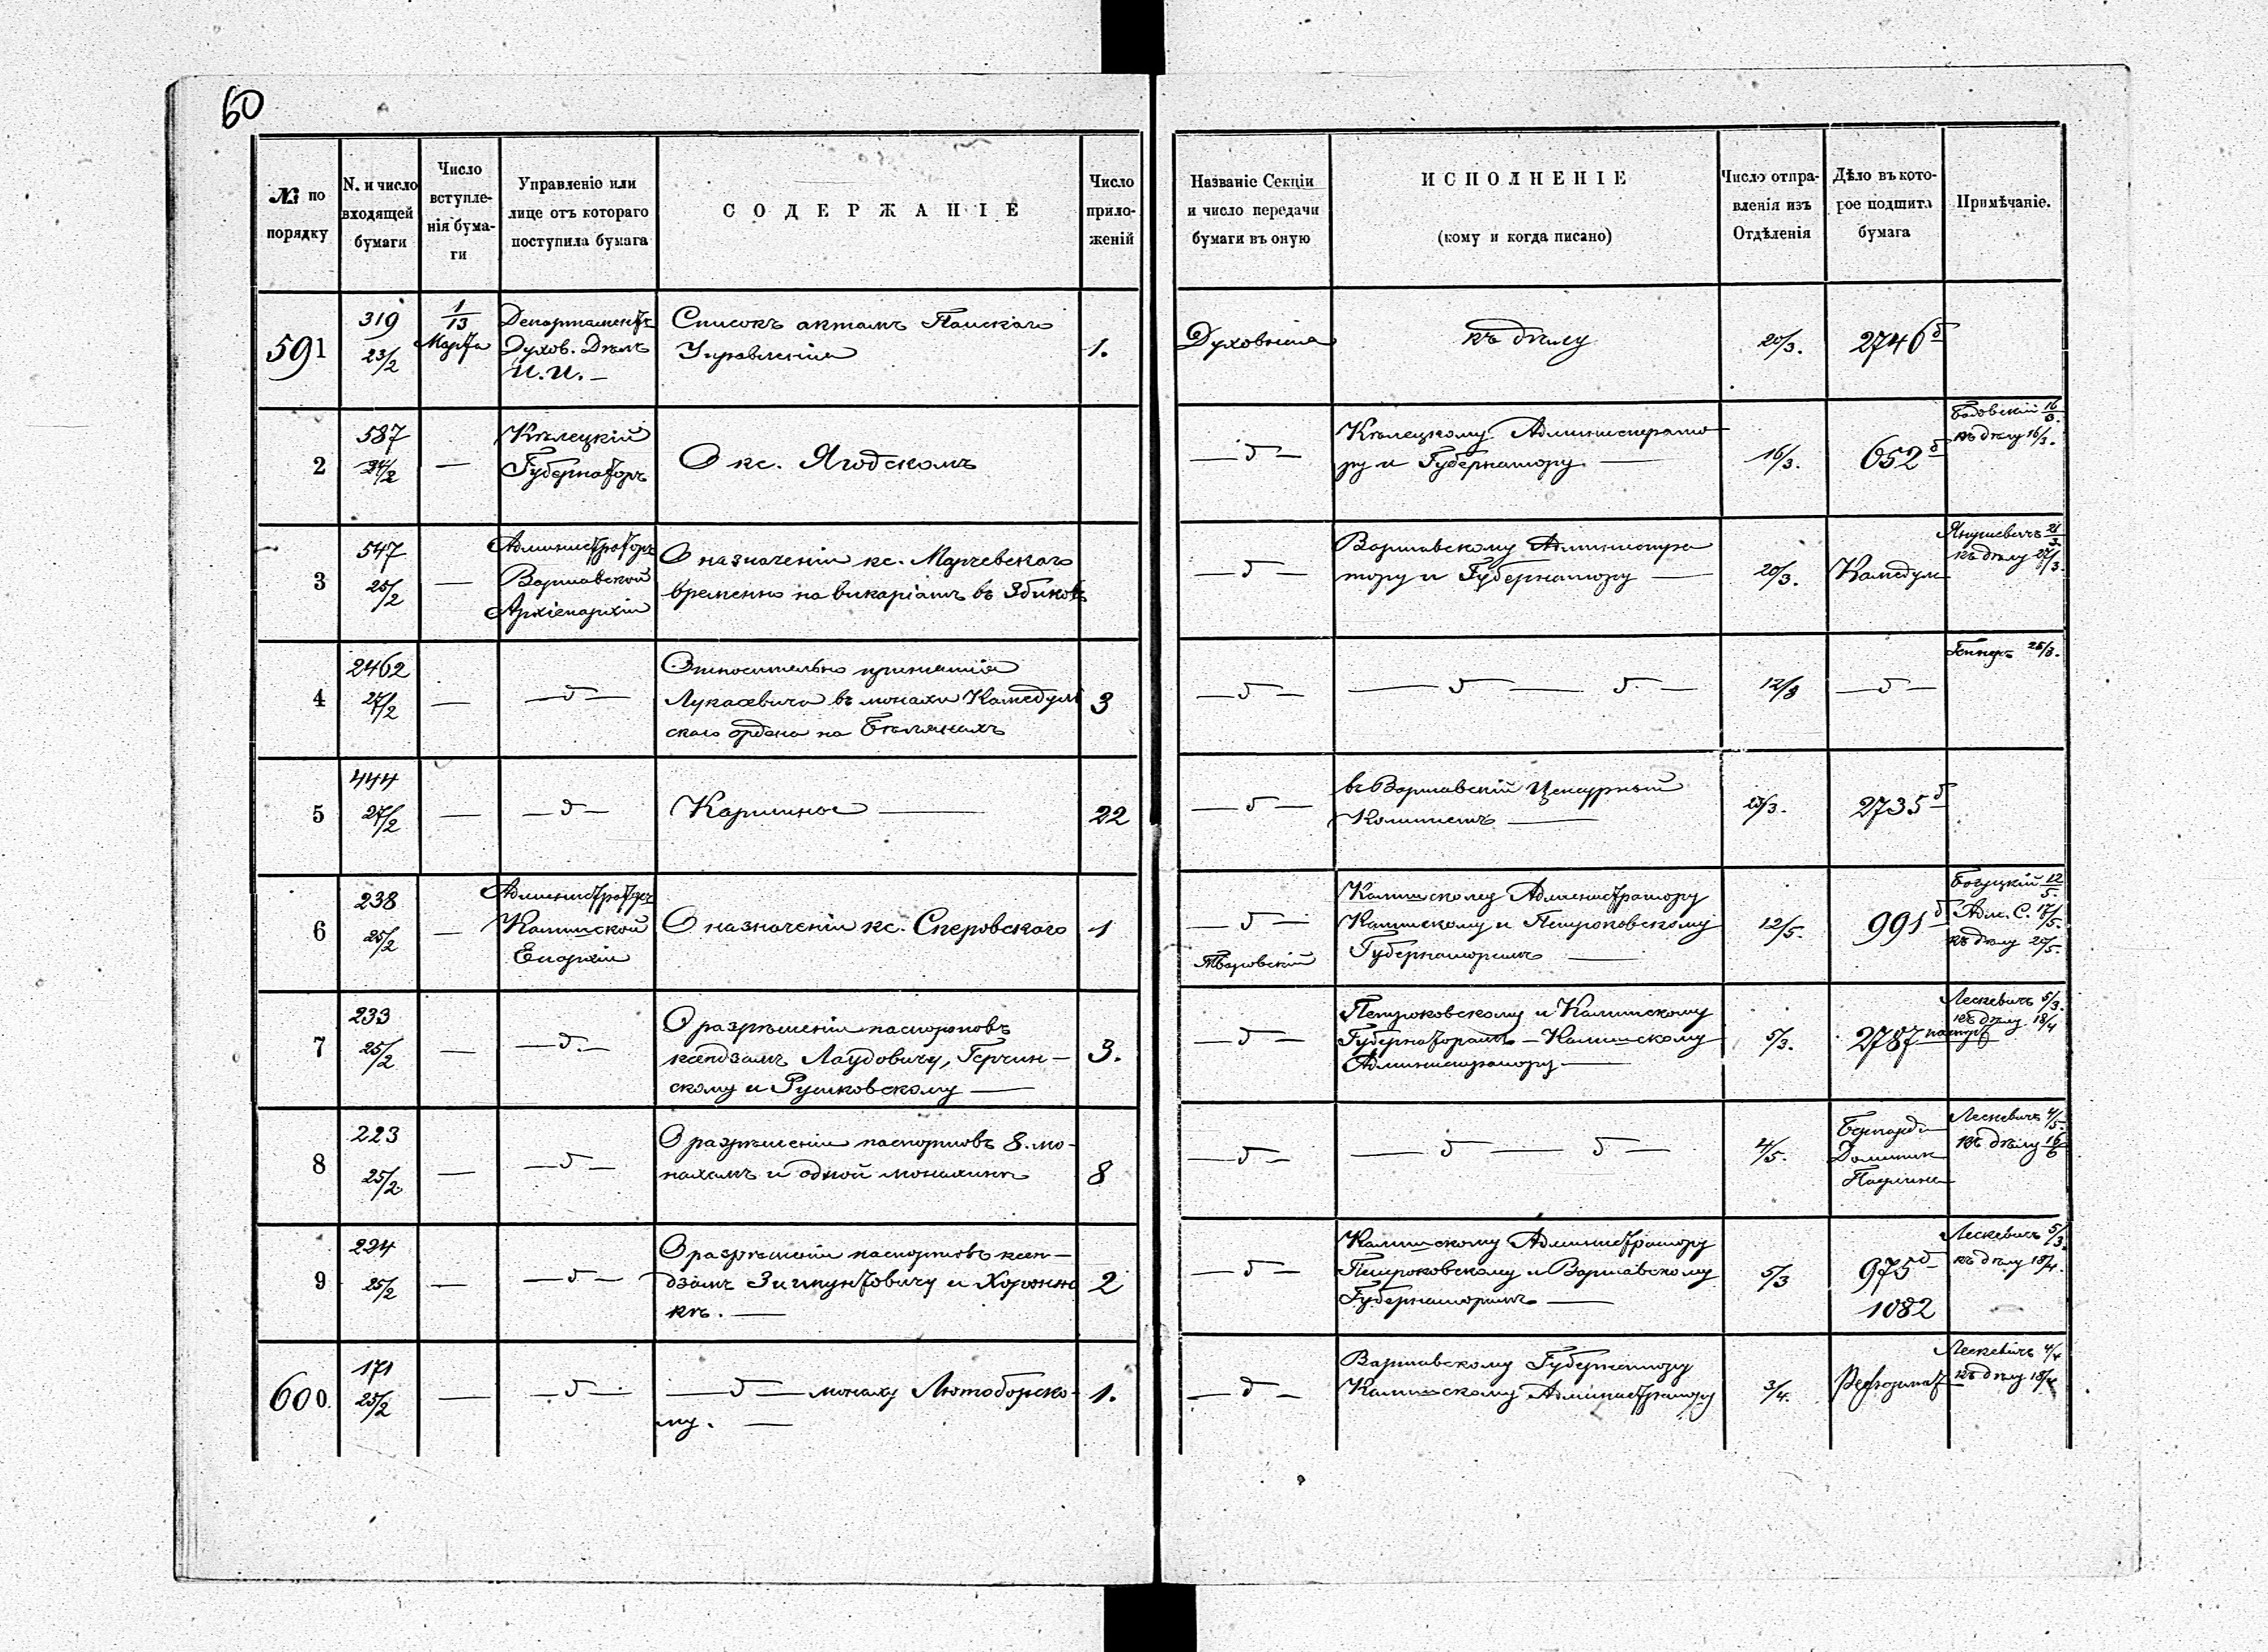 60
№ по порядку
N. и число входящей бумаги
Число вступленія бумаги
Управленіе или лице отъ котораго поступила бумага
СОДЕРЖАНІЕ
Число приложеній
Названіе Секціи и число передачи бумаги въ оную
ИСПОЛНЕНІЕ
(кому и когда писано)
Число отправленія изъ Отдѣленія
Дѣло въ которое подшита бумага
Примѣчаніе.
591
319
23/2
1/13
Марта
Департаментъ
Духов. Дѣлъ
И. И. —
Списокъ актамъ
Управленія
1.
Духовныя
къ дѣлу
20/3.
2746 б
2
587
24/2
—
Кѣлецкій
Губернаторъ
О кс. Ягодскомъ
— д —
Кѣлецкому Администрато
ру и Губернатору —
16/3.
652 б
16/3.
къ дѣлу 16/3.
3
547
25/2
—
Администраторъ
Варшавской
Архіепархіи
О назначеніи кс. Марчевскаго
временно на викаріатъ въ
— д —
Варшавскому Администра
тору и Губернатору —
20/3.
Камедул
Янушевичъ 21/3.
къ дѣлу 27/3.
4
2462
27/2
—
— д —
Относительно принятія
Лукасевича въ монахи Камедул
скаго ордена на Бѣлянахъ
3
— д —
— д — д. —
12/3
— д —
25/3.
5
444
27/2
—
— д —
—
22
— д —
въ Варшавскій Цензурный
Комитетъ —
2735 б
6
238
25/2
—
Администраторъ
Калишской
Епархіи
О назначеніи кс. Сперовскаго
1
— д —
Калишскому Администратору
Калишскому и Петроковскому
Губернаторамъ —
12/5.
991 б
Богуцкій 12/5.
Адм. С. 17/5.
къ дѣлу 20/5.
7
233
25/2
—
— д. —
О разрѣшеніи паспортовъ
ксендзамъ Лаудовичу, Герчин-
скому и Рушковскому —
3.
— д —
Петроковскому и Калишскому
Губернаторамъ — Калишскому
Администратору —
5/3.
2787
Лескевичъ 5/3.
къ дѣлу 18/4
8
223
25/2
—
— д —
О разрѣшеніи паспортовъ 8. мо-
нахамъ и одной монахинѣ
8
— д —
— д — д —
4/5.
Бернарди
Доминик
Паулине
Лескевичъ 4/5.
къ дѣлу 16/6
9
234
25/2
—
— д —
О разрѣшеніи паспортовъ ксен-
дзамъ Зигмунтовичу и
кѣ. —
2
— д —
Калишскому Администратору
Петроковскому и Варшавскому
Губернаторамъ —
5/3
975 б
1082
Лескевичъ 5/3.
къ дѣлу 18/4.
600
171
25/2
—
— д —
— д — монаху Лютоборско-
му. —
1.
— д —
Варшавскому Губернатору
Калишскому Администратору
3/4.
Реформат
Лескевичъ 4/4
къ дѣлу 18/4